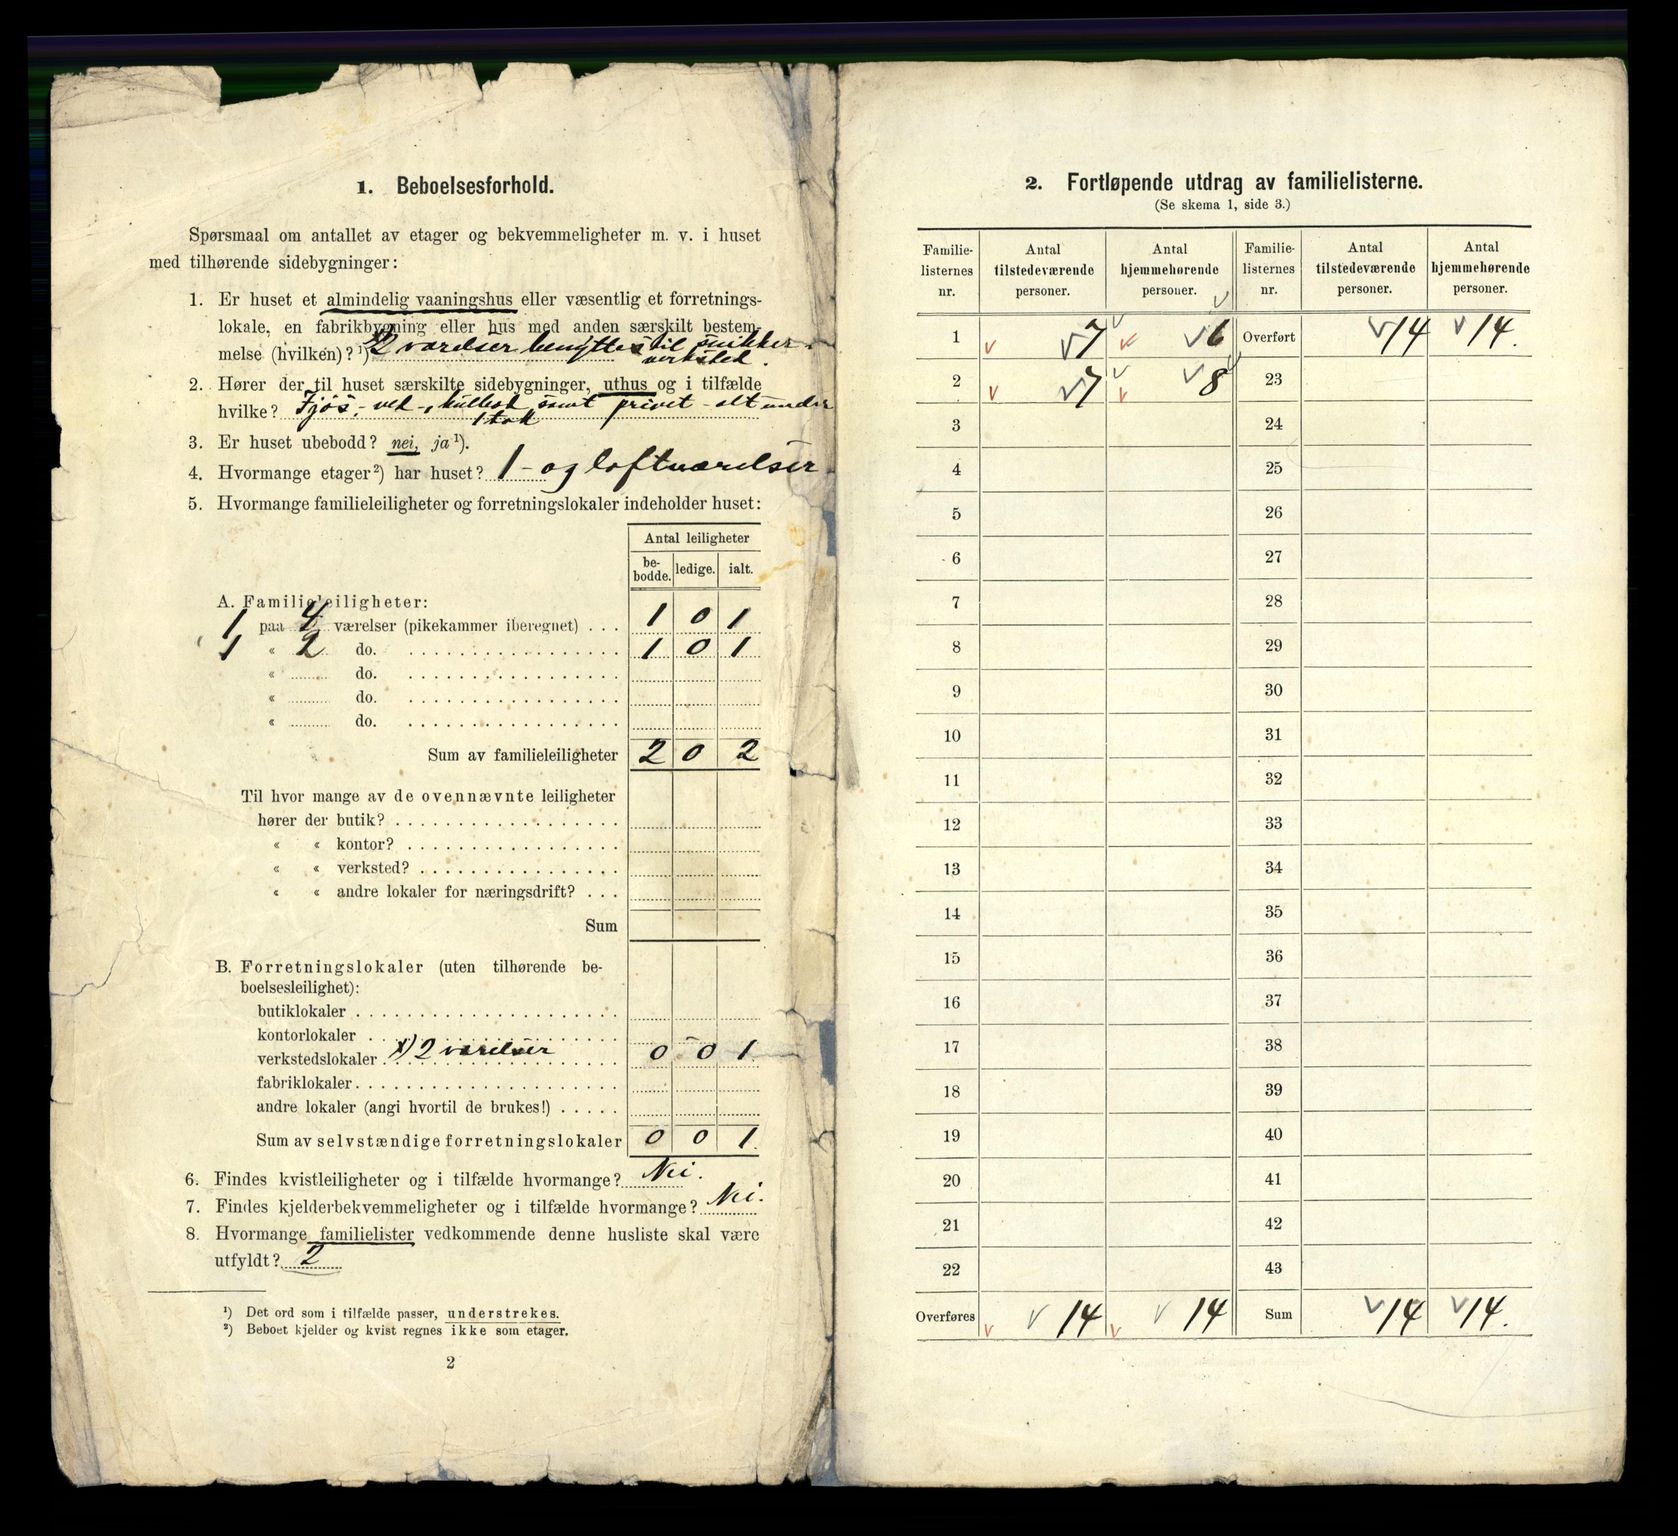 1. Beboelsesforhold.
Spørsmaal om antallet av etager og bekvemmeligheter m. v. i huset
med tilhørende sidebygninger:
1. Er huset et almindelig vaaningshus eller væsentlig et forretnings-
lokale, en fabrikbygning eller hus med anden særskilt bestem-
melse (hvilken)? ¹) x) 2 værelser benyttes til snikker-
verksted.
2. Hører der til huset særskilte sidebygninger, uthus og i tilfælde
hvilke? Fjøs,- ved-, kulbod samt privet - alt under
1 tak
3. Er huset ubebodd? nei, ja ¹).
4. Hvormange etager ²) har huset? 1 - og loftværelser
5. Hvormange familieleiligheter og forretningslokaler indeholder huset:
Antal leiligheter
be-bodde. ledige. ialt.
A. Familieleiligheter:
1 paa 4 værelser (pikekammer iberegnet) . . . 1 0 1
1 « 2 do. . . . 1 0 1
« do.
« do.
« do.
Sum av familieleiligheter 2 0 2
Til hvor mange av de ovennævnte leiligheter
hører der butik?
« « kontor?
« « verksted?
« « andre lokaler for næringsdrift? . . .
Sum
B. Forretningslokaler (uten tilhørende be-
boelsesleilighet):
butiklokaler
kontorlokaler
verkstedslokaler x) 2 værelser 0 0 1
fabriklokaler
andre lokaler (angi hvortil de brukes!)
Sum av selvstændige forretningslokaler 0 0 1.
6. Findes kvistleiligheter og i tilfælde hvormange? Nei.
7. Findes kjelderbekvemmeligheter og i tilfælde hvormange? Nei.
8. Hvormange familielister vedkommende denne husliste skal være
utfyldt? 2
¹) Det ord som i tilfælde passer, understrekes.
²) Beboet kjelder og kvist regnes ikke som etager.
2
2. Fortløpende utdrag av familielisterne.
(Se skema 1, side 3.)
Familie- Antal Antal Familie- Antal Antal
listernes tilstedeværende hjemmehørende listernes tilstedeværende hjemmehørende
nr. personer. personer. nr. personer. personer.
1 7 6 Overført 14 14.
2 7 8 23
3 24
4 25
5 26
6 27
7 28
8 29
9 30
10 31
11 32
12 33
13 34
14 35
15 36
16 37
17 38
18 39
19 40
20 41
21 42
22 43
Overføres 14 14 Sum 14 14.